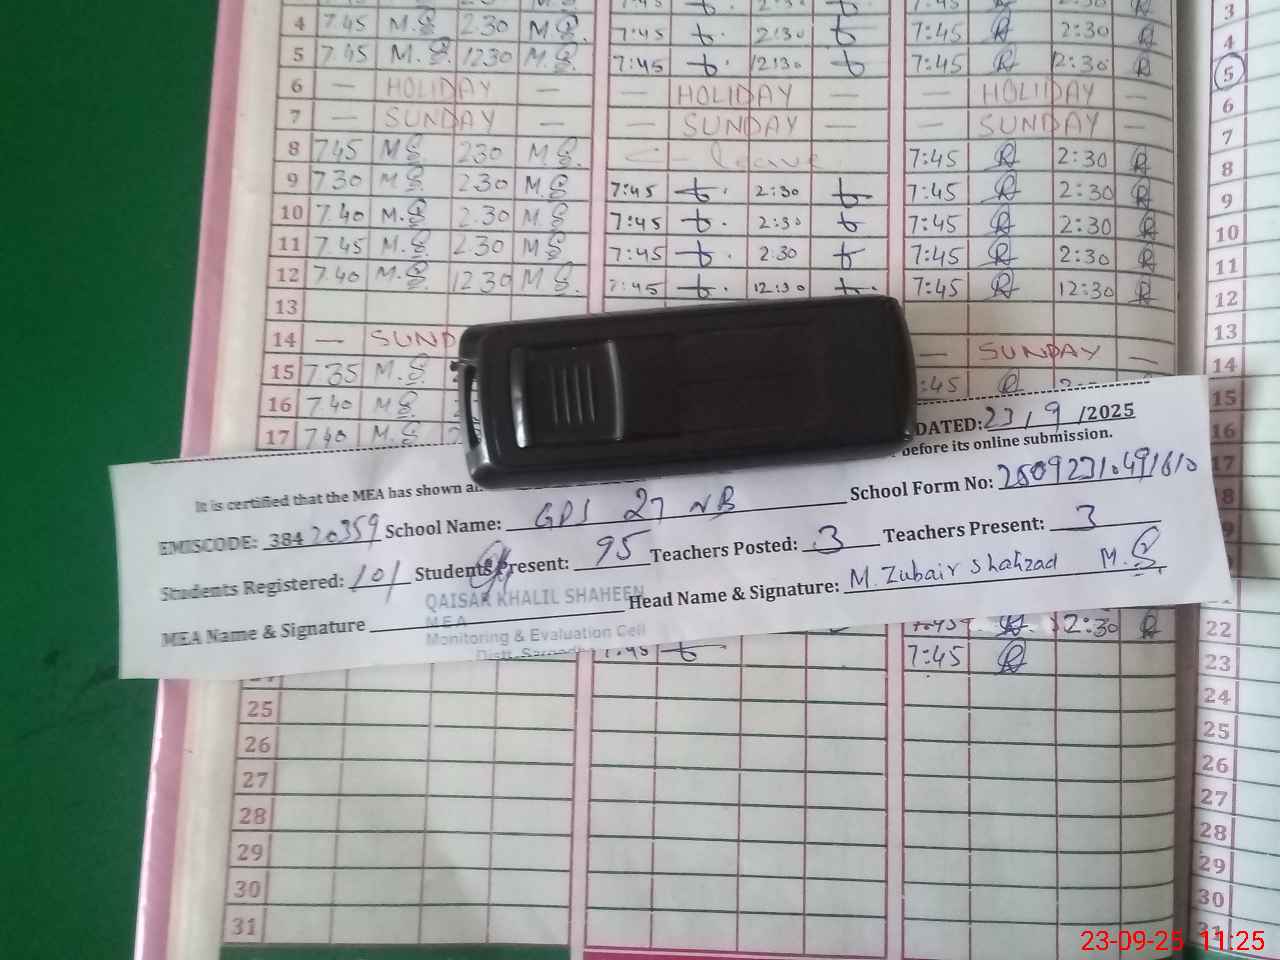 4 7.45 M.S 2.30 M.S 7:45 2:30 7:45 R 2:30 R 4
5 7.45 M.S 1230 M.S 7:45 12:30 7:45 R 12:30 R 5
6 — HOLIDAY — — HOLIDAY — — HOLIDAY — 6
7 — SUNDAY — — SUNDAY — — SUNDAY — 7
8 745 MS 230 MS leave 7:45 R 2:30 R 8
9 730 MS 230 M.S 7:45 2:30 7:45 R 2:30 R 9
10 7.40 M.S 2.30 M.S 7:45 2:30 7:45 R 2:30 R 10
11 7.45 M.S 2.30 MS 7:45 2:30 7:45 R 2:30 R 11
12 7.40 M.S 1230 MS 7:45 12:30 7:45 R 12:30 R 12
13 13
14 — SUND — SUNDAY — 14
15 735 M.S :45 R 15
16 7.40 MS 16
17 7.40 M.S 17
DATED: 23/9 /2025
It is certified that the MEA has shown before its online submission.
EMISCODE: 38420359 School Name: GPS 27 NB School Form No:
Students Registered: 101 Students Present: 95 Teachers Posted: 3 Teachers Present: 3
MEA Name & Signature Head Name & Signature: M. Zubair Shahzad M.S
QAISAR KHALIL SHAHEEN
M.E.A
Monitoring & Evaluation Cell
Distt.
7:45 R 2:30 R 22
7:45 7:45 R 23
24
25 25
26 26
27 27
28 28
29 29
30 30
31 31
23-09-25 11:25